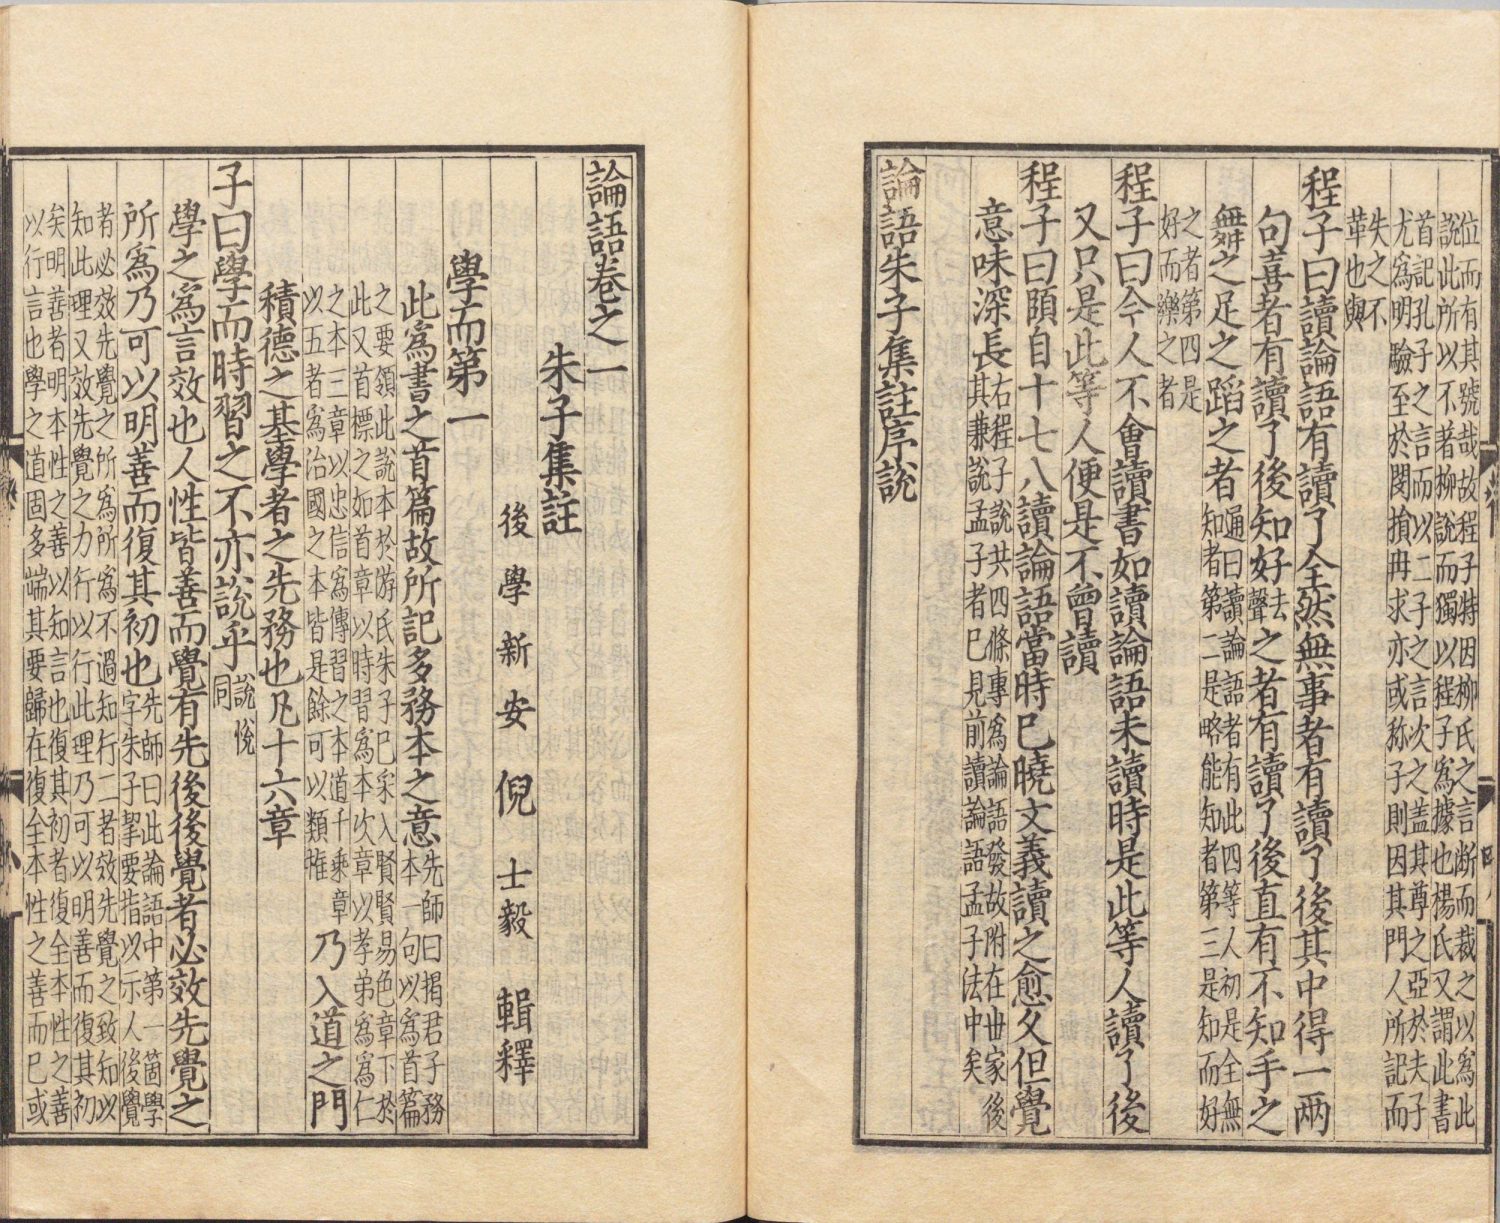 位而有其號哉故程子特因柳氏之言断而裁之以爲此
說此所以不著柳說而獨以程子爲據也楊氏又謂此書
首記孔子之言而以二子之言次之盖其尊之亞於夫子
尤爲明驗至於閔損冉求亦或称子則因其門人所記而
失之不
革也與
程子曰讀論語有讀了全然無事者有讀了後其中得一两
句喜者有讀了後知好去聲之者有讀了後直有不知手之
舞之足之蹈之者通曰讀論語者有此四等人初是全無
知者第二是略能知者第三是知而好
之者第四是
好而樂之者
程子曰今人不會讀書如讀論語未讀時是此等人讀了後
又只是此等人便是不曾讀
程子曰頤自十七八讀論語當時已曉文義讀之愈久但覺
意味深長右程子說共四條專爲論語發故附在世家後
其兼說孟子者已見前讀論語孟子法中矣
論語朱子集註序說
論語卷之一
朱子集註
後學新安倪士毅輯釋
學而第一
此爲書之首篇故所記多務本之意先師曰揭君子務
本一句以爲首篇
之要領此說本於游氏朱子已采入賢賢易色章下於
此又首標之如首章以時習爲本次章以孝弟爲爲仁
之本三章以忠信爲傳習之本道千乘章
以五者爲治國之本皆是餘可以類推乃入道之門
積德之基學者之先務也凡十六章
子曰學而時習之不亦說乎說悅
同
學之爲言效也人性皆善而覺有先後後覺者必效先覺之
所爲乃可以明善而復其初也先師曰此論語中第一箇學
字朱子挈要指以示人後覺
者必效先覺之所爲所爲不過知行二者效先覺之致知以
知此理又效先覺之力行以行此理乃可以明善而復其初
矣明善者明本性之善以知言也復其初者復全本性之善
以行言也學之道固多端其要歸在復全本性之善而已或